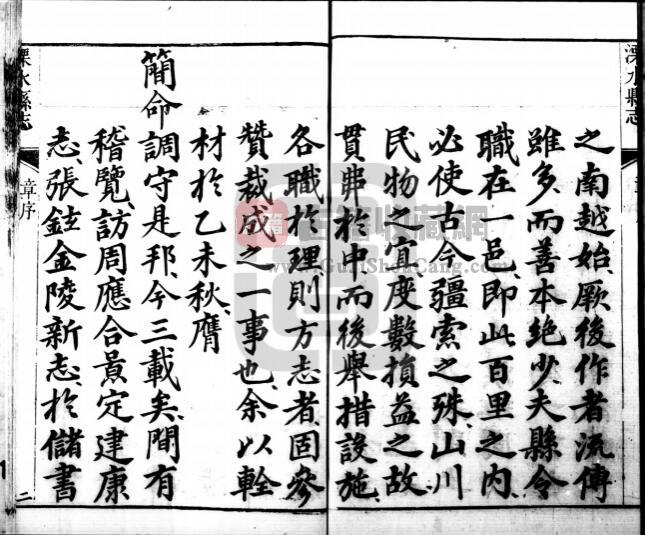 溧水縣志
之南越始、厥後作者流傳
雖多、而善本絶少、夫縣令
職在一邑、即此百里之内、
必使古今疆索之殊、山川
民物之宜、度數損益之故、
貫串於中、而後舉措設施、
各職於理、則方志者、固參
贊裁成之一事也、余以輇
材、於乙未秋、膺
簡命、調守是邦、今三載矣、間有
稽覽、訪周應合景定建康
志、張鉉金陵新志、於儲書
溧水縣志
章序
二
www.GujiShouCang.com